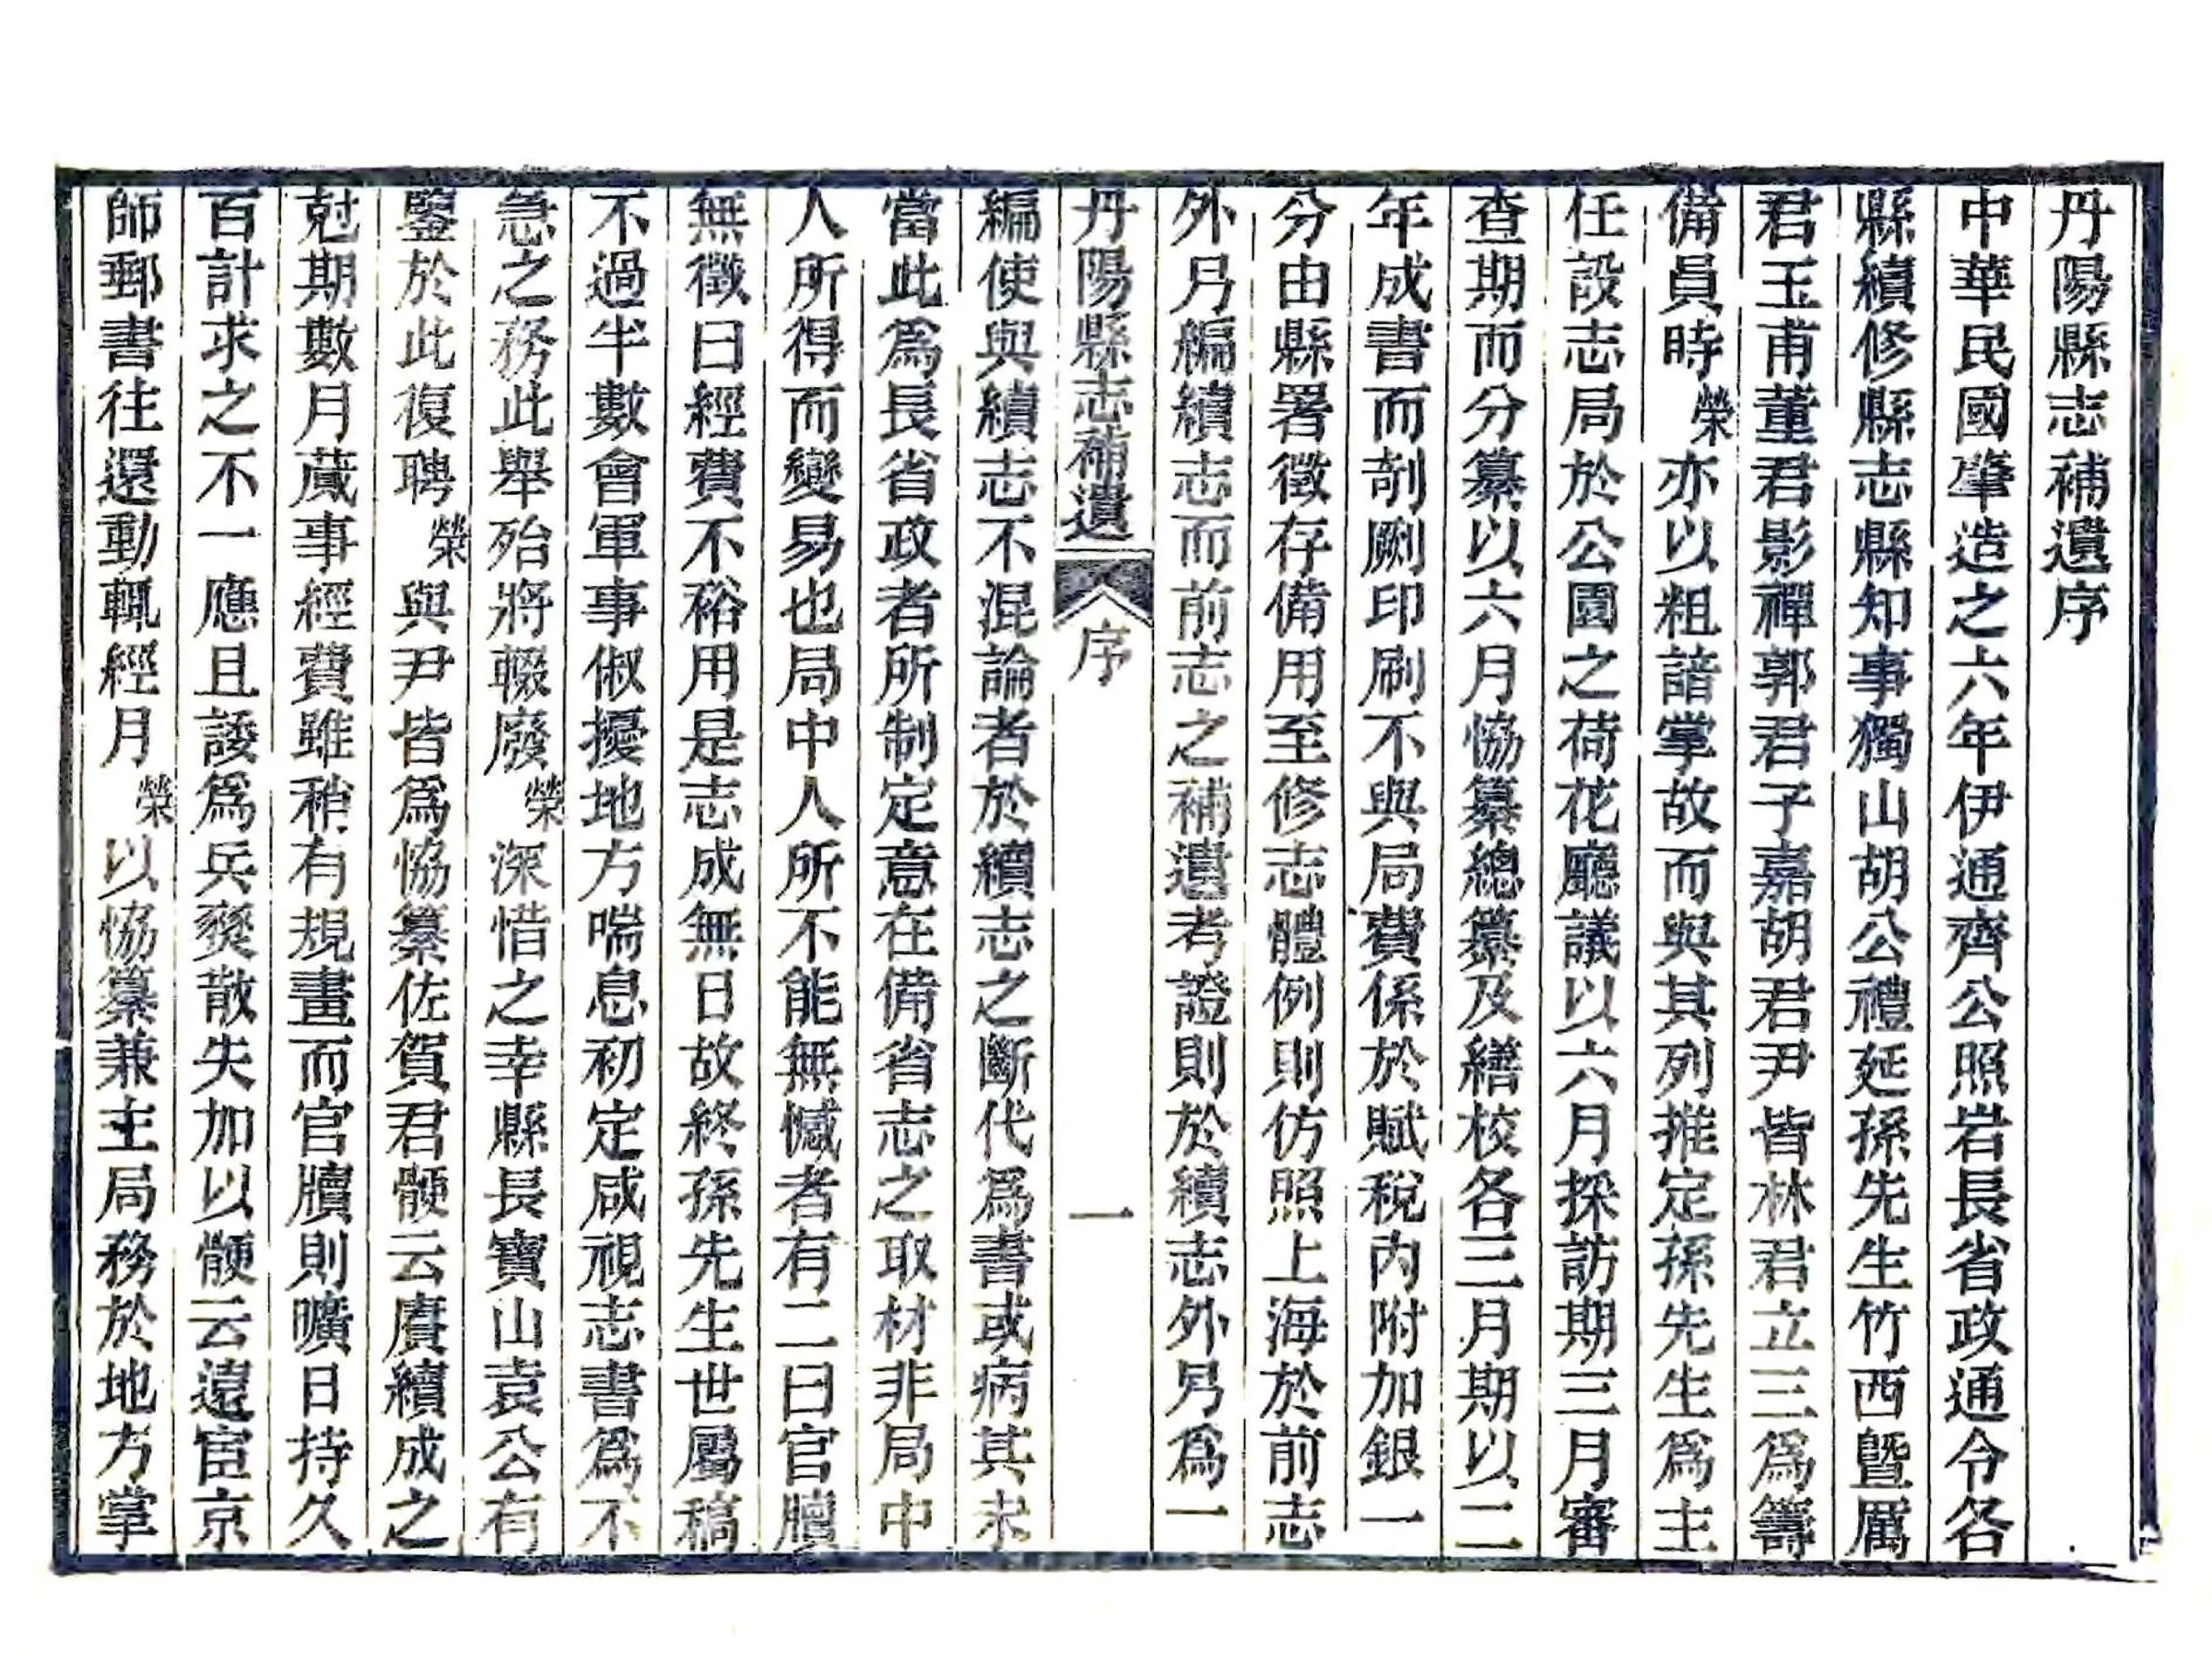 丹陽縣志補遺序
中華民國肇造之六年伊通齊公照岩長省政通令各
縣續修縣志縣知事獨山胡公禮延孫先生竹西暨厲
君玉甫董君影禪郭君子嘉胡君尹皆林君立三爲籌
備員時榮亦以粗諳掌故而與其列推定孫先生爲主
任設志局於公園之荷花廳議以六月採訪期三月審
查期而分纂以六月恊纂總纂及繕校各三月期以二
年成書而剞劂印刷不與局費係於賦稅内附加銀一
分由縣署徵存備用至修志體例則仿照上海於前志
外另編續志而前志之補遺考證則於續志外另爲一
丹陽縣志補遺 序 一
編使與續志不混論者於續志之斷代爲書或病其未
當此爲長省政者所制定意在備省志之取材非局中
人所得而變易也局中人所不能無憾者有二曰官牘
無徵曰經費不裕用是志成無日故終孫先生世屬稿
不過半數會軍事俶擾地方喘息初定咸視志書爲不
急之務此舉殆將輟廢榮深惜之幸縣長寶山袁公有
鑒於此復聘榮與尹皆爲恊纂佐賀君骾云賡續成之
尅期數月蕆事經費雖稍有規畫而官牘則曠日持久
百計求之不一應且諉爲兵燹散失加以骾云遠宦京
師郵書往還動輒經月榮以恊纂兼主局務於地方掌